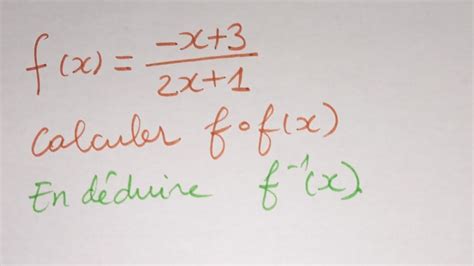 f(x) = \frac{-x+3}{2x+1}
Calculer f∘f(x)
En déduire f⁻¹(x).